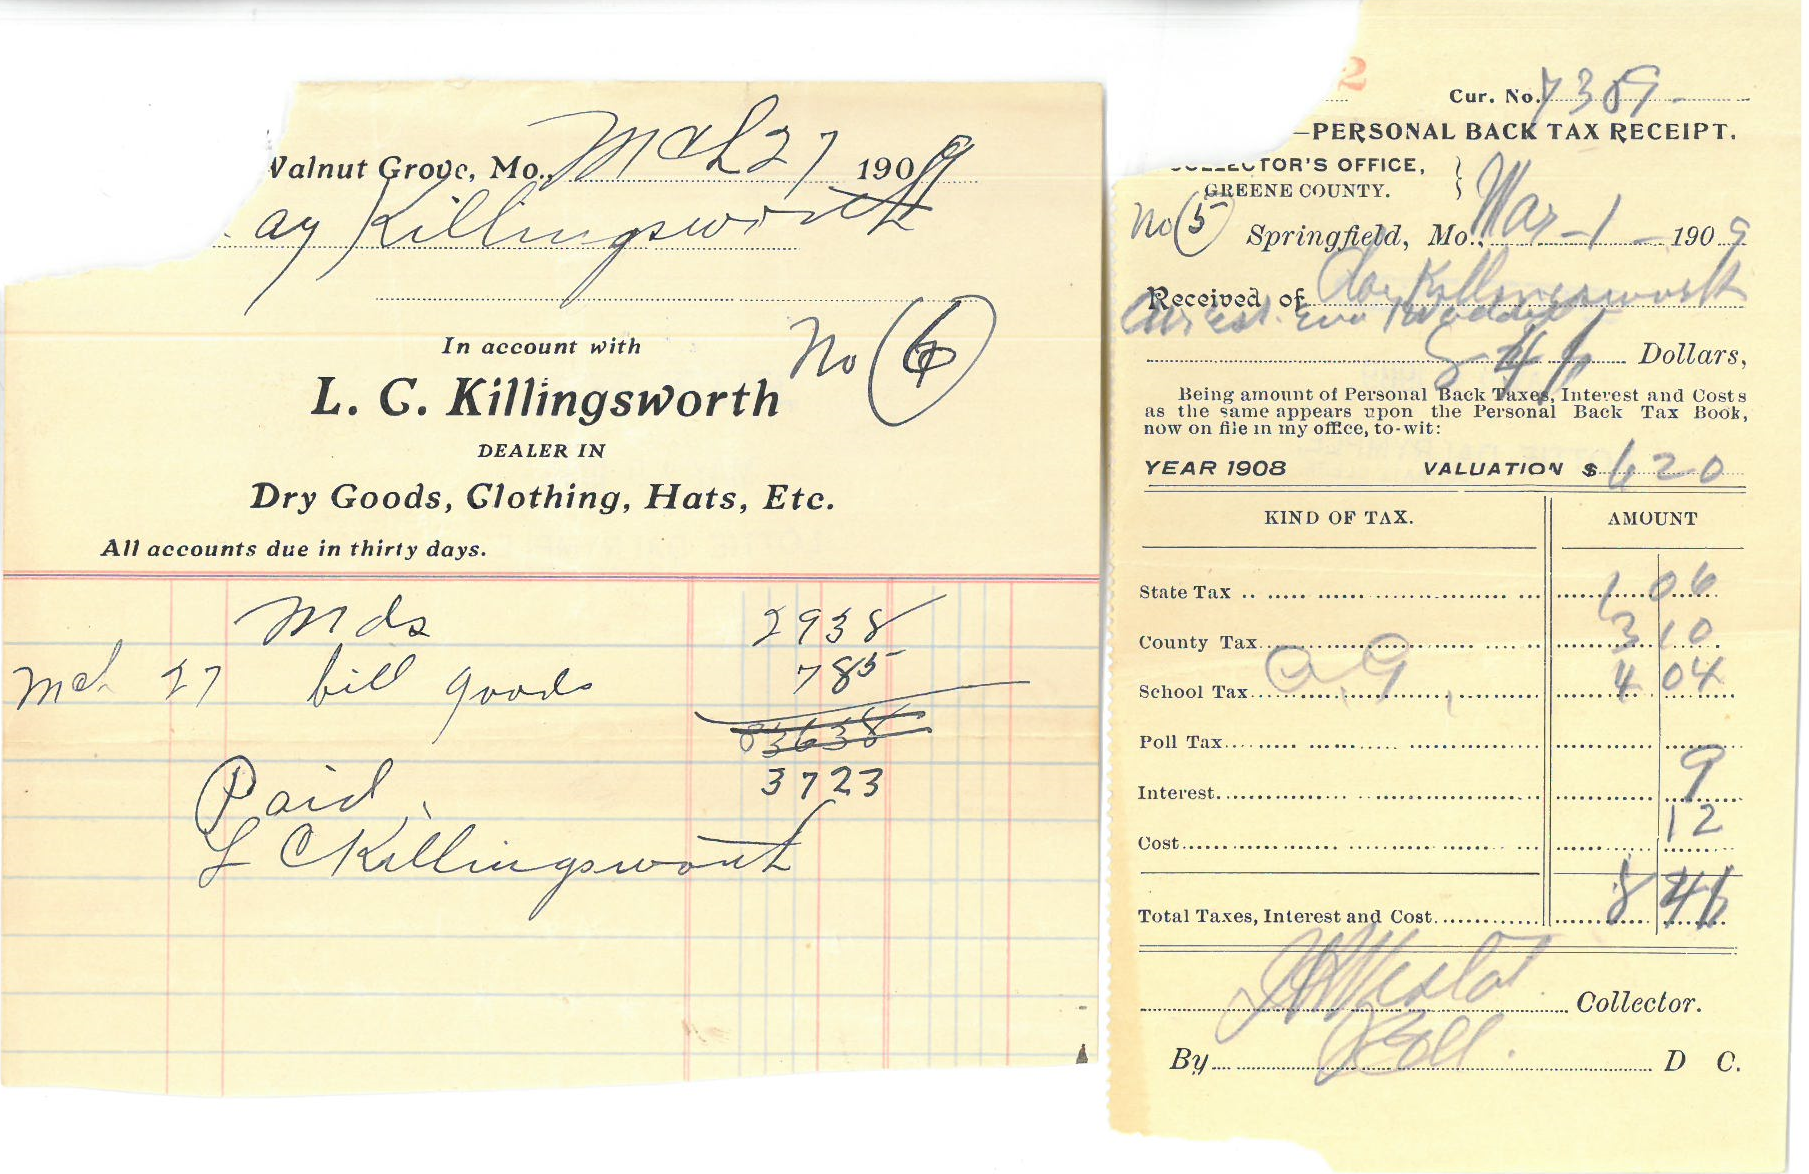 Walnut Grove, Mo., Mch 27 1909
ay Killingsworth
In account with
No 6
L. C. Killingsworth
DEALER IN
Dry Goods, Clothing, Hats, Etc.
All accounts due in thirty days.
Mds 2938
Mch 27 bill goods 785
3638
3723
Paid
L C Killingsworth
2
Cur. No. 7389
—PERSONAL BACK TAX RECEIPT.
COLLECTOR'S OFFICE,
GREENE COUNTY.
No 5 Springfield, Mo., Mar-1- 1909
Received of Clay Killingsworth
Est. Eva
8 46 Dollars,
Being amount of Personal Back Taxes, Interest and Costs
as the same appears upon the Personal Back Tax Book,
now on file in my office, to-wit:
YEAR 1908 VALUATION $ 620
KIND OF TAX. AMOUNT
State Tax 1 06
County Tax 3 10
School Tax 4 04
Poll Tax
Interest 9
Cost 12
Total Taxes, Interest and Cost 8 46
Collector.
By D C.